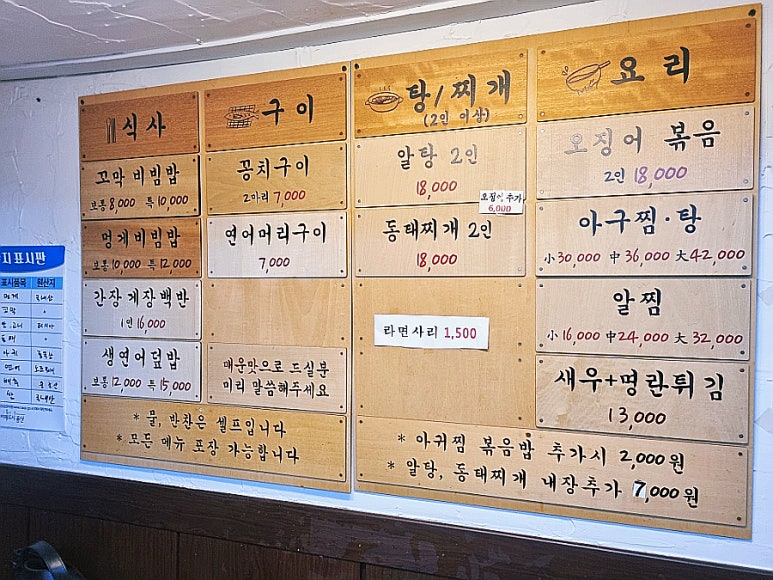 식사
꼬막 비빔밥
보통 8,000 특 10,000
멍게비빔밥
보통 10,000 특 12,000
간장 게장백반
1인 16,000
생연어덮밥
보통 12,000 특 15,000
구이
꽁치구이
2마리 7,000
연어머리구이
7,000
매운맛으로 드실분
미리 말씀해주세요
* 물, 반찬은 셀프입니다
* 모든 메뉴 포장 가능합니다
탕/찌개
(2인 이상)
알탕 2인
18,000
오징어 추가
6,000
동태찌개 2인
18,000
라면사리 1,500
요리
오징어 볶음
2인 18,000
아구찜·탕
小 30,000 中 36,000 大 42,000
알찜
小 16,000 中 24,000 大 32,000
새우+명란튀김
13,000
* 아귀찜 볶음밥 추가시 2,000원
* 알탕, 동태찌개 내장추가 7,000원
지 표시판
표시품목 원산지
멍게 국내산
꼬막